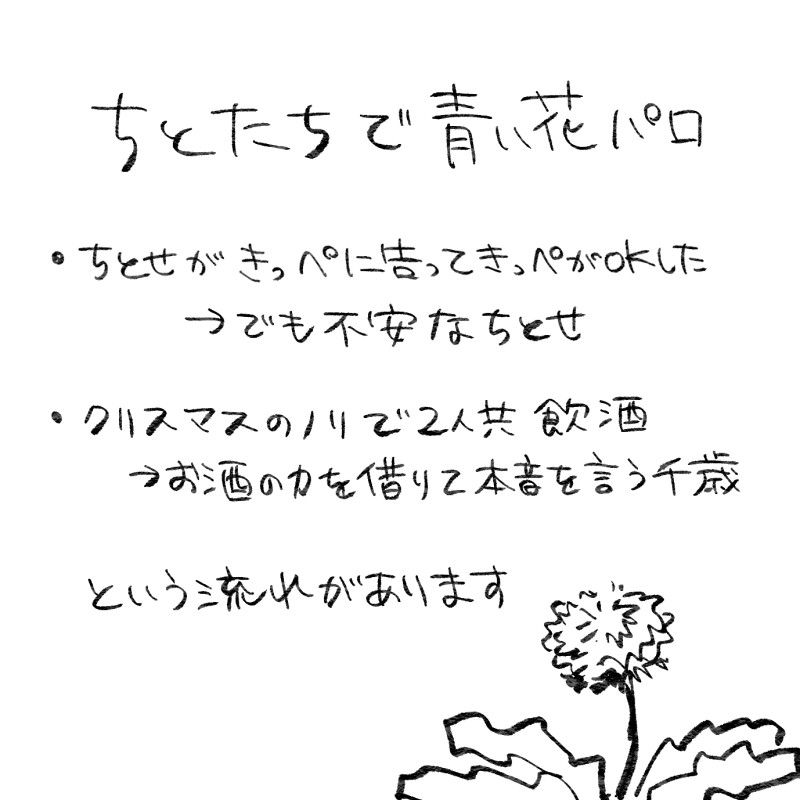 ちとたちで青い花パロ
・ちとせがきっぺに告ってきっぺがOKした
→でも不安なちとせ
・クリスマスのノリで2人共飲酒
→お酒の力を借りて本音を言う千歳
という流れがあります